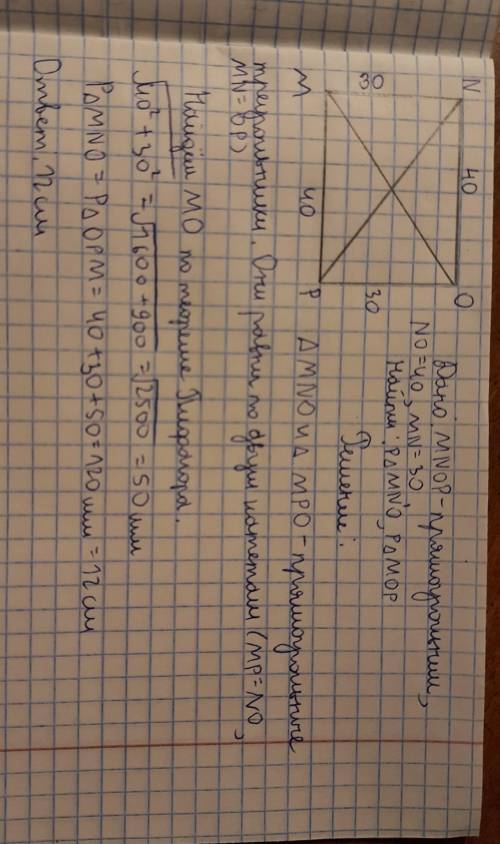 N 40 O
30 30
M 40 P
Дано: MNOP - прямоугольник,
NO=40, MN=30
Найти: P∆MNO, P∆MOP
Решение:
∆MNO и ∆ MPO - прямоугольные
треугольники. Они равны по двум катетам (MP=NO,
MN=OP)
Найдём MO по теореме Пифагора.
√40²+30² = √1600+900 = √2500 = 50 мм
P∆MNO = P∆OPM = 40+30+50=120 мм = 12 см
Ответ: 12 см